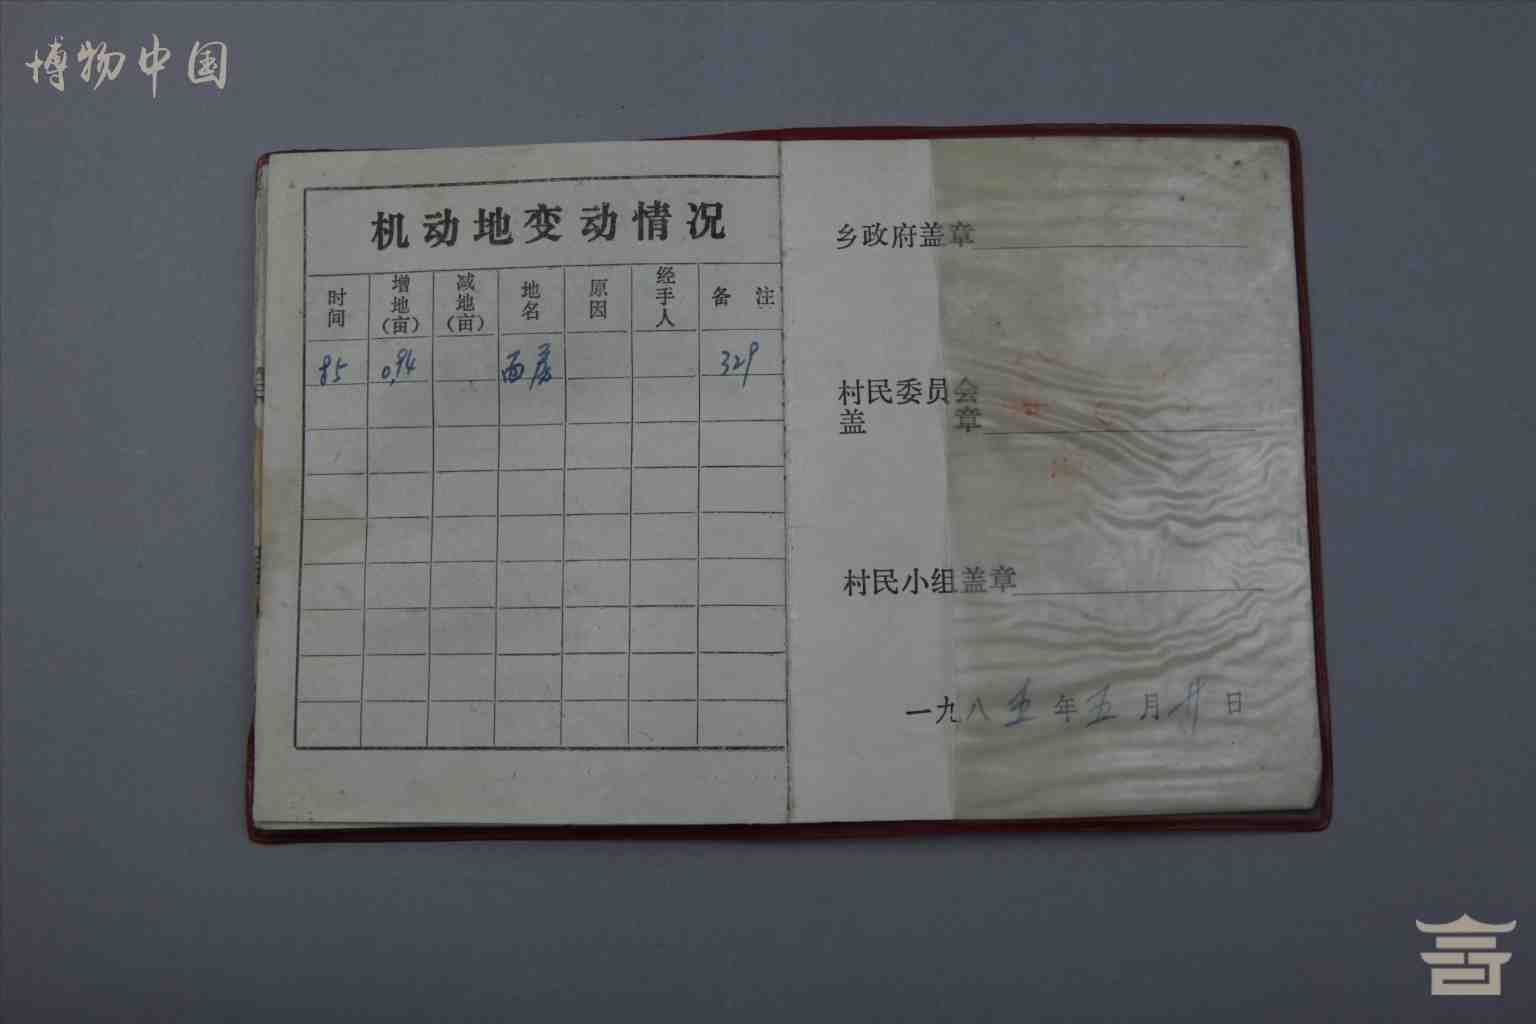 博物中国
机动地变动情况
时间 增地(亩) 减地(亩) 地名 原因 经手人 备注
85 0.94 329
乡政府盖章
村民委员会
盖章
村民小组盖章
一九八五年五月廿日